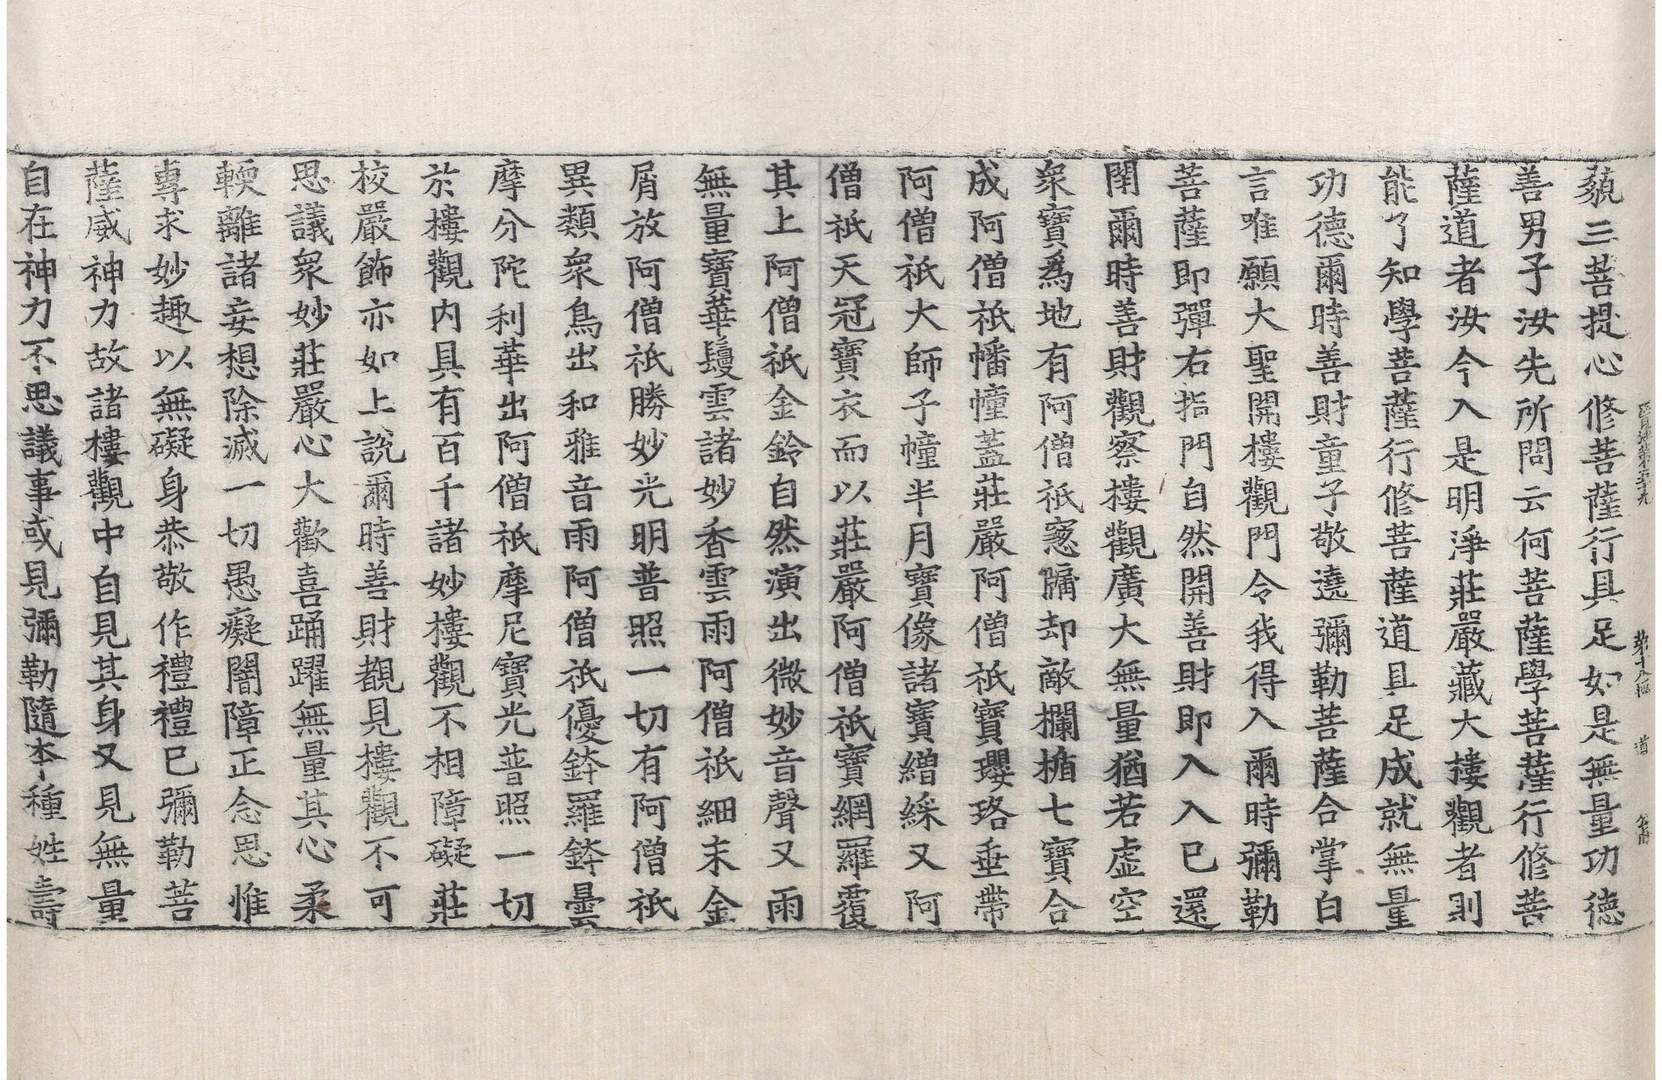 藐三菩提心修菩薩行具足如是無量功德
善男子汝先所問云何菩薩學菩薩行修菩
薩道者汝今入是明淨莊嚴藏大樓觀者則
能了知學菩薩行修菩薩道具足成就無量
功德爾時善財童子敬遶彌勒菩薩合掌白
言唯願大聖開樓觀門令我得入爾時彌勒
菩薩即彈右指門自然開善財即入入已還
閉爾時善財觀察樓觀廣大無量猶若虛空
衆寶爲地有阿僧祇窻牖却敵欄楯七寶合
成阿僧祇幡幢蓋莊嚴阿僧祇寶瓔珞垂帶
阿僧祇大師子幢半月寶像諸寶繒綵又阿
僧祇天冠寶衣而以莊嚴阿僧祇寶網羅覆
其上阿僧祇金鈴自然演出微妙音聲又雨
無量寶華鬘雲諸妙香雲雨阿僧祇細末金
屑放阿僧祇勝妙光明普照一切有阿僧祇
異類衆鳥出和雅音雨阿僧祇優鉢羅鉢曇
摩分陀利華出阿僧祇摩尼寶光普照一切
於樓觀内具有百千諸妙樓觀不相障礙莊
校嚴飾亦如上說爾時善財覩見樓觀不可
思議衆妙莊嚴心大歡喜踊躍無量其心柔
輭離諸妄想除滅一切愚癡闇障正念思惟
專求妙趣以無礙身恭敬作禮禮已彌勒菩
薩威神力故諸樓觀中自見其身又見無量
自在神力不思議事或見彌勒隨本種姓壽